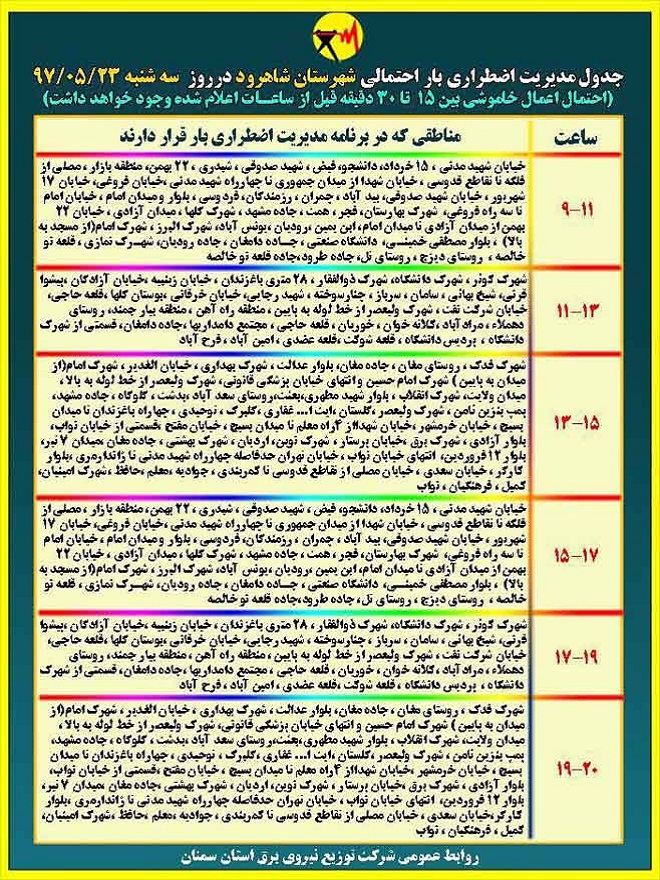 جدول مدیریت اضطراری بار احتمالی شهرستان شاهرود در روز سه شنبه ۹۷/۰۵/۲۳
(احتمال اعمال خاموشی بین ۱۵ تا ۳۰ دقیقه قبل از ساعات اعلام شده وجود خواهد داشت)
ساعت
مناطقی که در برنامه مدیریت اضطراری بار قرار دارند
۹-۱۱
خیابان شهید مدنی ، ۱۵ خرداد، دانشجو، فیض ، شهید صدوقی ، شیدری ، ۲۲ بهمن، منطقه بازار ، مصلی از
فلکه تا تقاطع فدوسی ، خیابان شهدا از میدان جمهوری تا چهارراه شهید مدنی ،خیابان فروغی، خیابان ۱۷
شهریور ، خیابان شهید صدوقی، بید آباد ، چمران ، رزمندگان، فردوسی ، بلوار و میدان امام ، خیابان امام
تا سه راه فروغی، شهرک بهارستان، فجر ، همت ، جاده مشهد ، شهرک گلها ، میدان آزادی ، خیابان ۲۲
بهمن از میدان آزادی تا میدان امام، ابن یمین ،رودیان ،یونس آباد، شهرک البرز ، شهرک امام(از مسجد به
بالا) ، بلوار مصطفی خمینی، دانشگاه صنعتی ، جاده دامغان ، جاده رودیان، شهرک نمازی ، قلعه نو
خالصه ، روستای دیزج ، روستای تل، جاده طرود،جاده قلعه نو خالصه
۱۱-۱۳
شهرک کوثر ، شهرک دانشگاه، شهرک ذوالفقار ، ۲۸ متری باغزندان ، خیابان زینبیه ،خیابان آزادگان ،پیشوا
قرنی، شیخ بهائی ، سامان ، سرباز ، چنارسوخته ، شهید رجایی، خیابان خرقانی ،بوستان گلها ،قلعه حاجی،
خیابان شرکت نفت ، شهرک ولیعصر از خط لوله به پایین ، منطقه راه آهن ، منطقه بیار جمند، روستای
دهملاء ، مراد آباد ،کلاته خوان ، خوریان ، قلعه حاجی ، مجتمع دامداریها ،جاده دامغان، قسمتی از شهرک
دانشگاه ، پردیس دانشگاه ، قلعه شوکت، قلعه عضدی ، امین آباد ، فرح آباد
۱۳-۱۵
شهرک فدک ، روستای مغان ، جاده مغان، بلوار عدالت ، شهرک بهداری ، خیابان الغدیر ، شهرک امام(از
میدان به پایین ) شهرک امام حسین و انتهای خیابان پزشکی قانونی، شهرک ولیعصر از خط لوله به بالا ،
میدان ولایت، شهرک انقلاب ، بلوار شهید مطهری،بعثت،روستای سعد آباد ،بدشت ، کلوکاه ، جاده مشهد،
پمپ بنزین ثامن ، شهرک ولیعصر ،گلستان ، ایت ا... غفاری ، گلبرگ ، توحیدی ، چهاراه باغزندان تا میدان
بسیج ، خیابان خرمشهر ،خیابان شهدااز ۴راه معلم تا میدان بسیج ، خیابان مفتح ،قسمتی از خیابان نواب،
بلوار آزادی ، شهرک برق ،خیابان پرستار ، شهرک نوین، اردیان ، شهرک بهشتی ، جاده مغان ،میدان ۷ تیر،
بلوار ۱۲ فروردین، انتهای خیابان نواب ، خیابان تهران حدفاصله چهارراه شهید مدنی تا ژاندارمری ،بلوار
کارگر ، خیابان سعدی ، خیابان مصلی از تقاطع فدوسی تا کمربندی ، جوادیه ،معلم ،حافظ ،شهرک امینیان،
کمیل ، فرهنگیان ، نواب
۱۵-۱۷
خیابان شهید مدنی ، ۱۵ خرداد، دانشجو، فیض ، شهید صدوقی ، شیدری ، ۲۲ بهمن، منطقه بازار ، مصلی از
فلکه تا تقاطع فدوسی ، خیابان شهدا از میدان جمهوری تا چهارراه شهید مدنی ،خیابان فروغی، خیابان ۱۷
شهریور ، خیابان شهید صدوقی، بید آباد ، چمران ، رزمندگان، فردوسی ، بلوار و میدان امام ، خیابان امام
تا سه راه فروغی، شهرک بهارستان، فجر ، همت ، جاده مشهد ، شهرک گلها ، میدان آزادی ، خیابان ۲۲
بهمن از میدان آزادی تا میدان امام، ابن یمین ،رودیان ،یونس آباد، شهرک البرز ، شهرک امام(از مسجد به
بالا) ، بلوار مصطفی خمینی، دانشگاه صنعتی ، جاده دامغان ، جاده رودیان، شهرک نمازی ، قلعه نو
خالصه ، روستای دیزج ، روستای تل، جاده طرود،جاده قلعه نو خالصه
۱۷-۱۹
شهرک کوثر ، شهرک دانشگاه، شهرک ذوالفقار ، ۲۸ متری باغزندان ، خیابان زینبیه ،خیابان آزادگان ،پیشوا
قرنی، شیخ بهائی ، سامان ، سرباز ، چنارسوخته ، شهید رجایی، خیابان خرقانی ،بوستان گلها ،قلعه حاجی،
خیابان شرکت نفت ، شهرک ولیعصر از خط لوله به پایین ، منطقه راه آهن ، منطقه بیار جمند، روستای
دهملاء ، مراد آباد ،کلاته خوان ، خوریان ، قلعه حاجی ، مجتمع دامداریها ،جاده دامغان، قسمتی از شهرک
دانشگاه ، پردیس دانشگاه ، قلعه شوکت، قلعه عضدی ، امین آباد ، فرح آباد
۱۹-۲۰
شهرک فدک ، روستای مغان ، جاده مغان، بلوار عدالت ، شهرک بهداری ، خیابان الغدیر ، شهرک امام(از
میدان به پایین ) شهرک امام حسین و انتهای خیابان پزشکی قانونی، شهرک ولیعصر از خط لوله به بالا ،
میدان ولایت، شهرک انقلاب ، بلوار شهید مطهری،بعثت،روستای سعد آباد ،بدشت ، کلوکاه ، جاده مشهد،
پمپ بنزین ثامن ، شهرک ولیعصر ،گلستان ، ایت ا... غفاری ، گلبرگ ، توحیدی ، چهاراه باغزندان تا میدان
بسیج ، خیابان خرمشهر ،خیابان شهدااز ۴راه معلم تا میدان بسیج ، خیابان مفتح ،قسمتی از خیابان نواب،
بلوار آزادی ، شهرک برق ،خیابان پرستار ، شهرک نوین، اردیان ، شهرک بهشتی ، جاده مغان ،میدان ۷ تیر،
بلوار ۱۲ فروردین، انتهای خیابان نواب ، خیابان تهران حدفاصله چهارراه شهید مدنی تا ژاندارمری ،بلوار
کارگر،خیابان سعدی ، خیابان مصلی از تقاطع فدوسی تا کمربندی ، جوادیه ،معلم ،حافظ ،شهرک امینیان،
کمیل ، فرهنگیان ، نواب
روابط عمومی شرکت توزیع نیروی برق استان سمنان